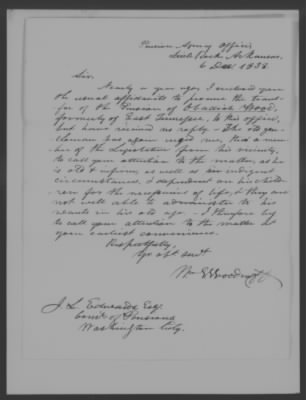 Pension Agency Office,
Little Rock Arkansas,
6 Dec. 1838.
Sir.
Nearly a year ago I enclosed you
the usual affidavits to procure the trans-
fer of the Pension of Obadiah Wood,
formerly of East Tennessee, to this office,
but have received no reply. - The old gen-
tleman has again urged me, thro' a mem-
ber of the Legislature from his county,
to call your attention to the matter, as he
is old & infirm, as well as in indigent
circumstances, & dependent on his child-
ren for the necessaries of life, & they are
not well able to administer to his
wants in his old age. - I therefore beg
to call your attention to the matter at
your earliest convenience.
Respectfully,
Yr obt servt
Wm E Woodruff
J. L. Edwards Esq.
Comr. of Pensions
Washington City.